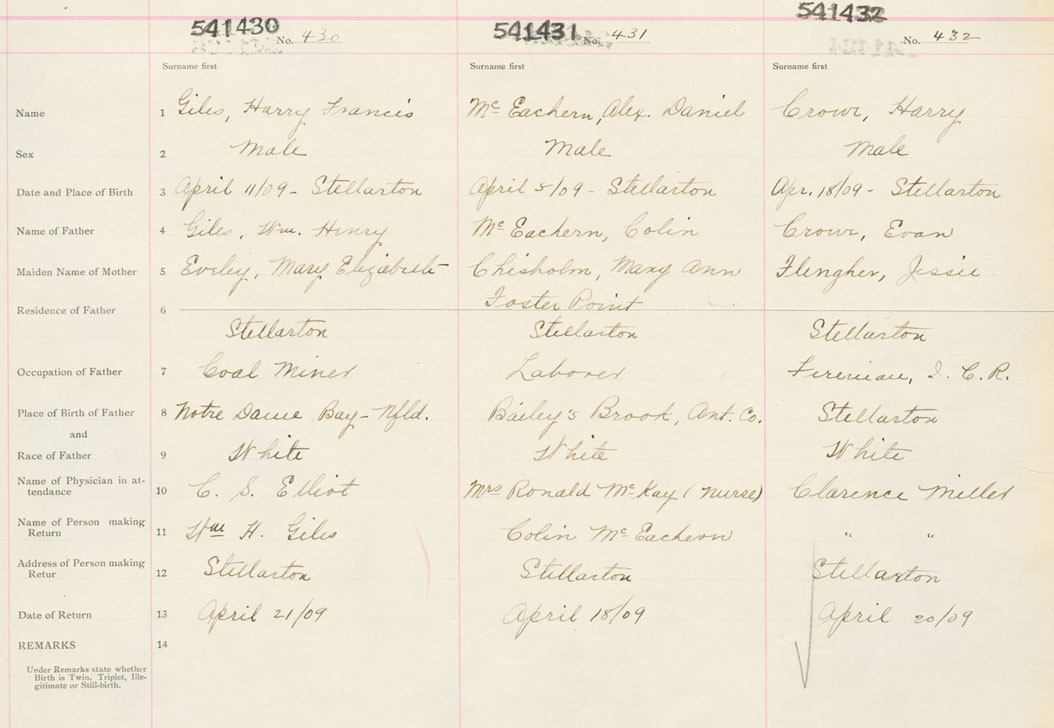 541430 No. 430 541431 No. 431 541432 No. 432
Surname first Surname first Surname first
Name 1 Giles, Harry Francis McEachern, Alex. Daniel Crowe, Harry
Sex 2 Male Male Male
Date and Place of Birth 3 April 11/09 - Stellarton April 5/09 - Stellarton Apr. 18/09 - Stellarton
Name of Father 4 Giles, Wm. Henry McEachern, Colin Crowe, Evan
Maiden Name of Mother 5 Eveley, Mary Elizabeth Chisholm, Mary Ann Flengher, Jessie
Foster Point
Residence of Father 6
Stellarton Stellarton Stellarton
Occupation of Father 7 Coal Miner Laborer Fireman, I. C. R.
Place of Birth of Father 8 Notre Dame Bay - Nfld. Bailey's Brook, Ant. Co. Stellarton
and
Race of Father 9 White White White
Name of Physician in at-
tendance 10 C. S. Elliot Mrs Ronald McKay (Nurse) Clarence Miller
Name of Person making
Return 11 Wm H. Giles Colin McEachern " "
Address of Person making
Retur 12 Stellarton Stellarton Stellarton
Date of Return 13 April 21/09 April 18/09 April 20/09
REMARKS 14
Under Remarks state whether
Birth is Twin, Triplet, Ille-
gitimate or Still-birth.